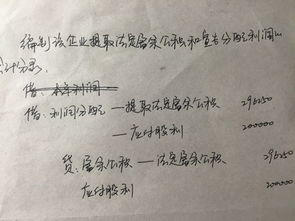 编制该企业提取法定盈余公积和宣告分配利润的
会计分录.
借: 本年利润
借: 利润分配 — 提取法定盈余公积 296250
— 应付股利 200000
贷: 盈余公积 — 法定盈余公积 296250
应付股利 200000